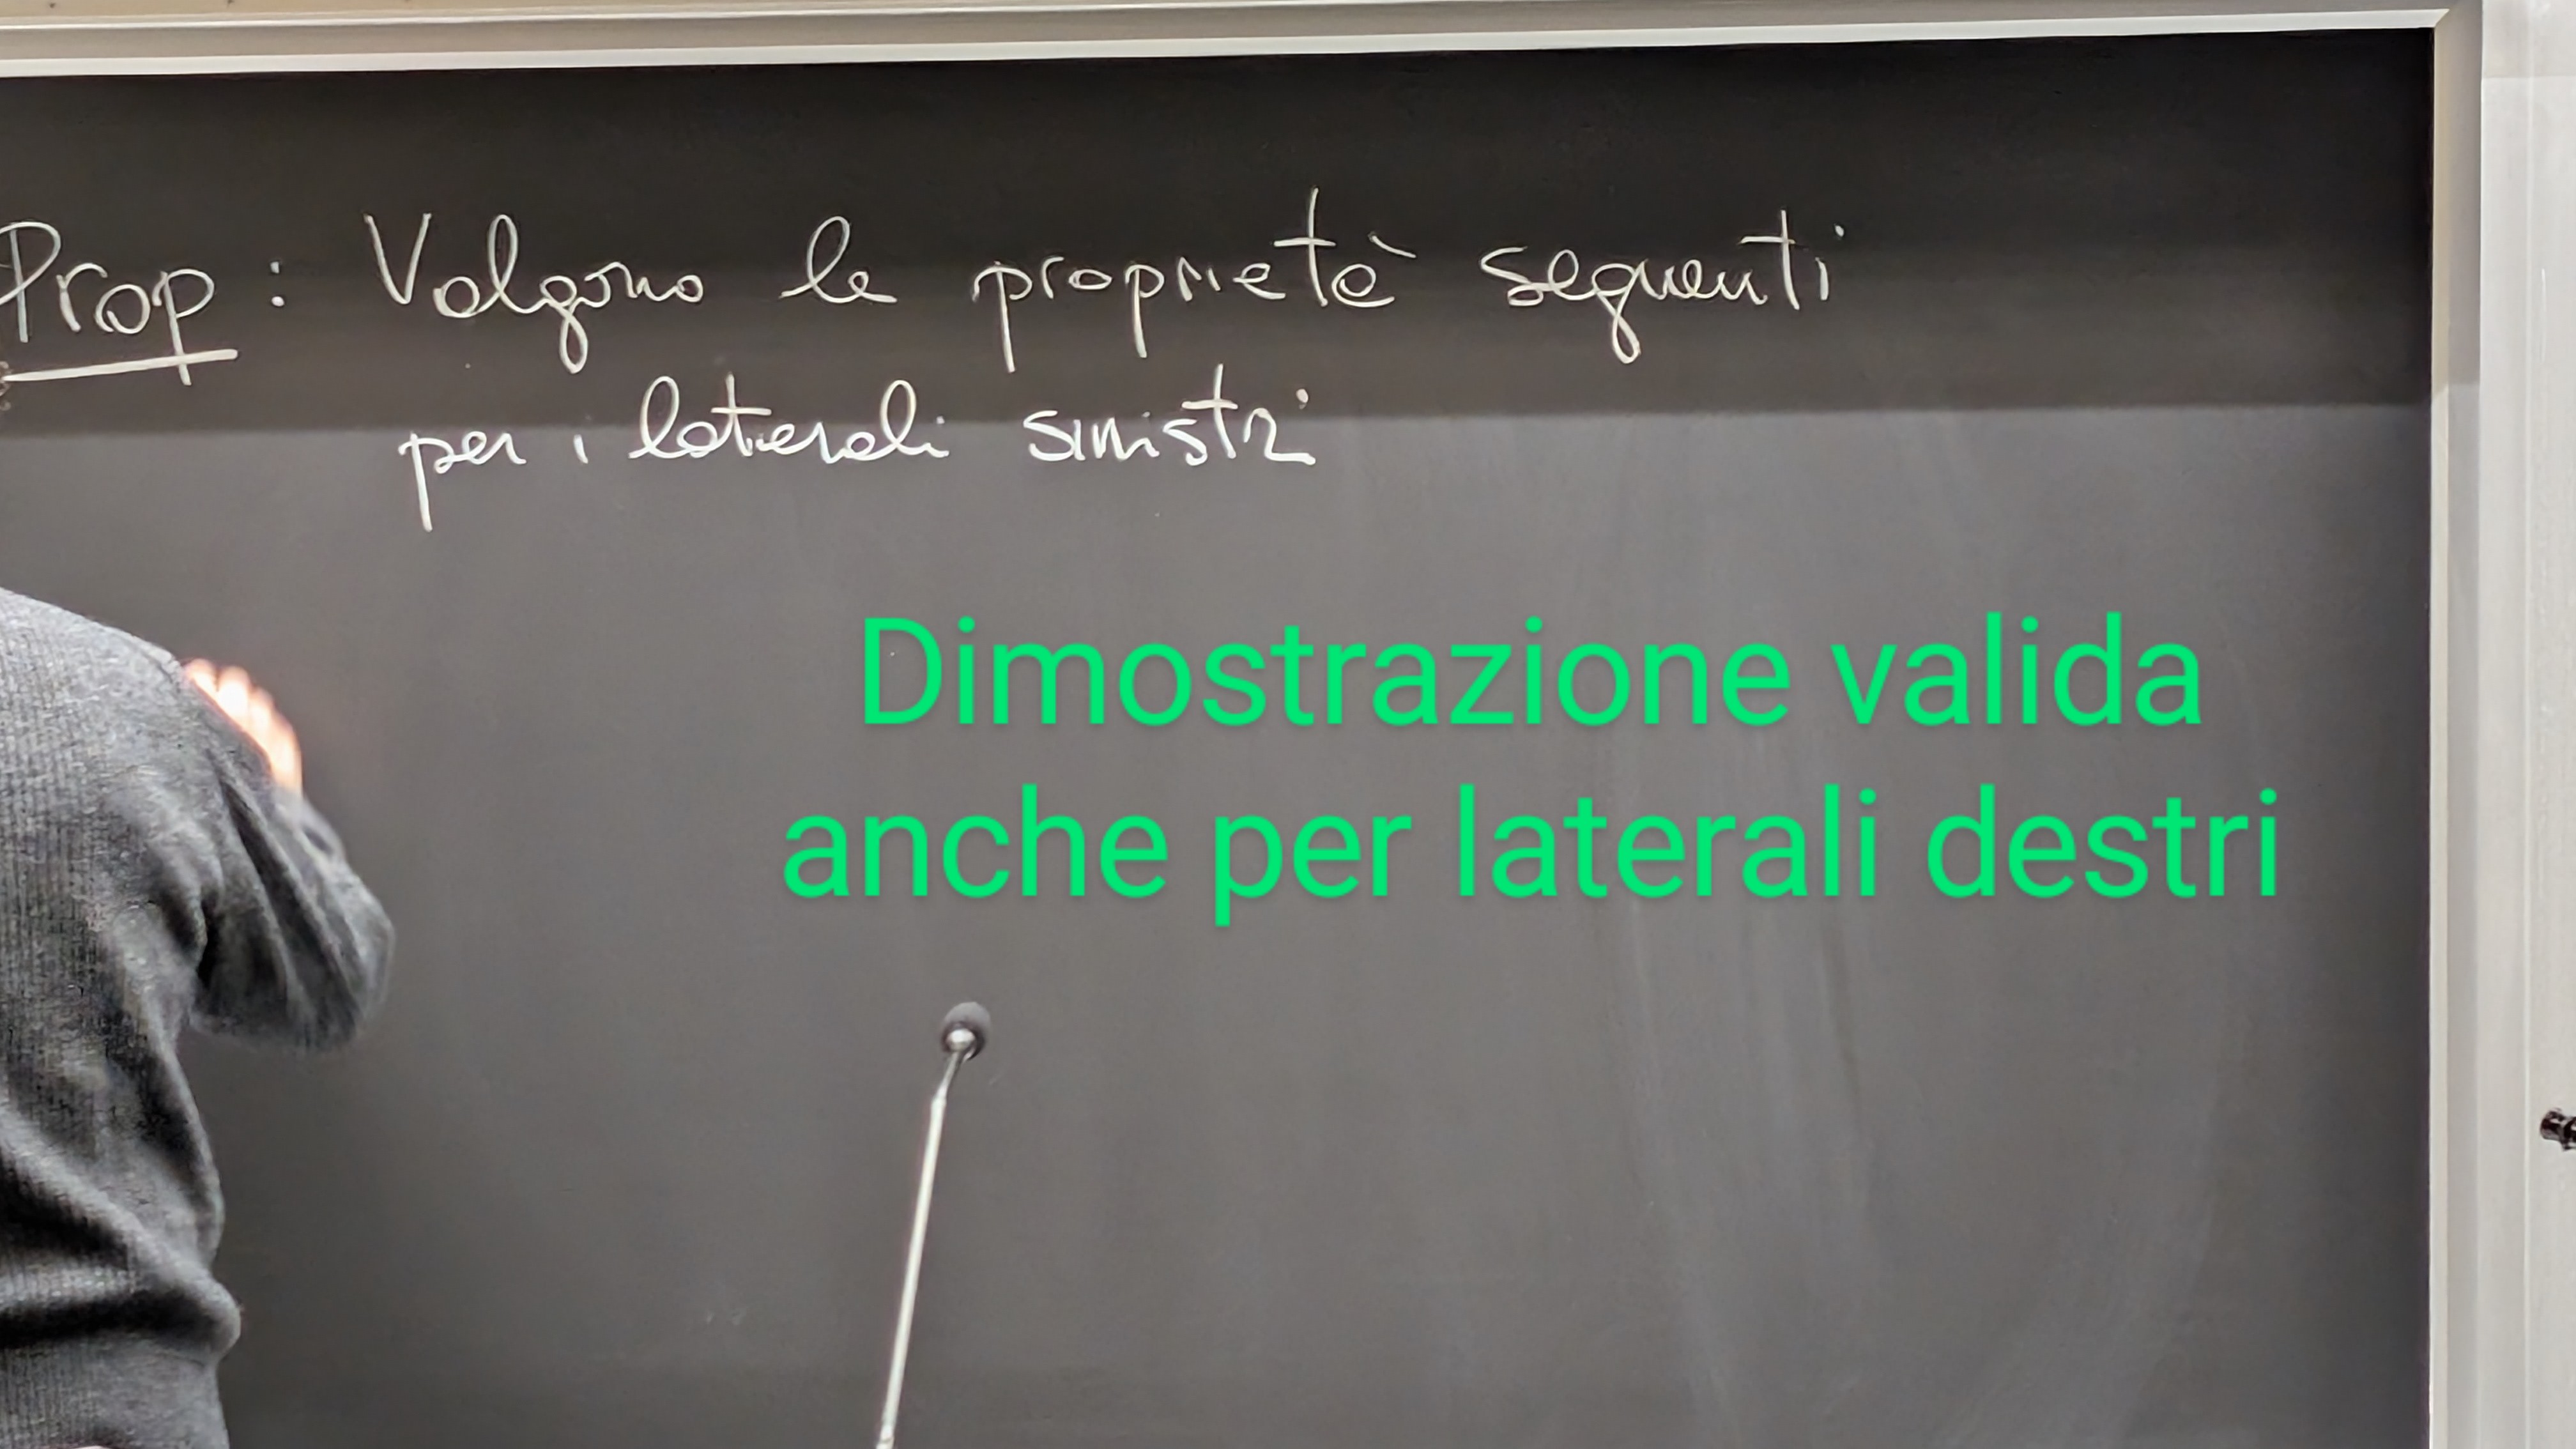 Prop: Valgono le proprietà seguenti
per i laterali sinistri
Dimostrazione valida
anche per laterali destri